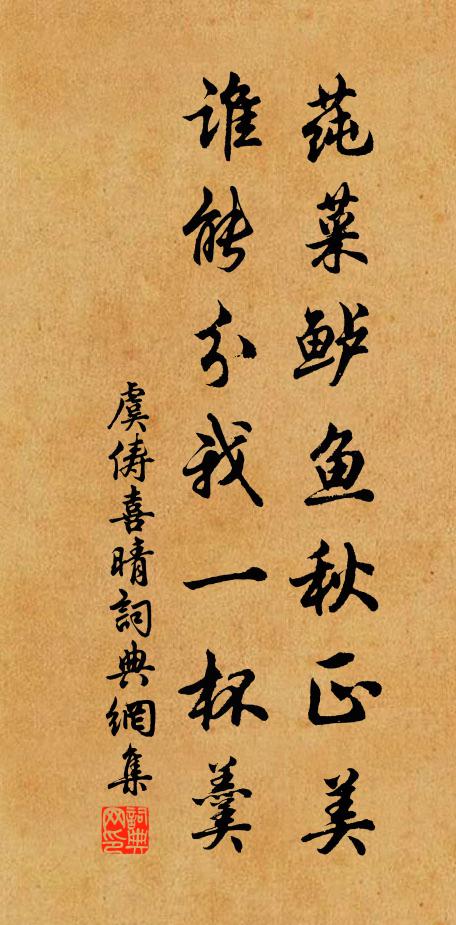 莼菜鲈鱼秋正美
谁能分我一杯羹
虞俦喜晴詞典網集
詞典网印